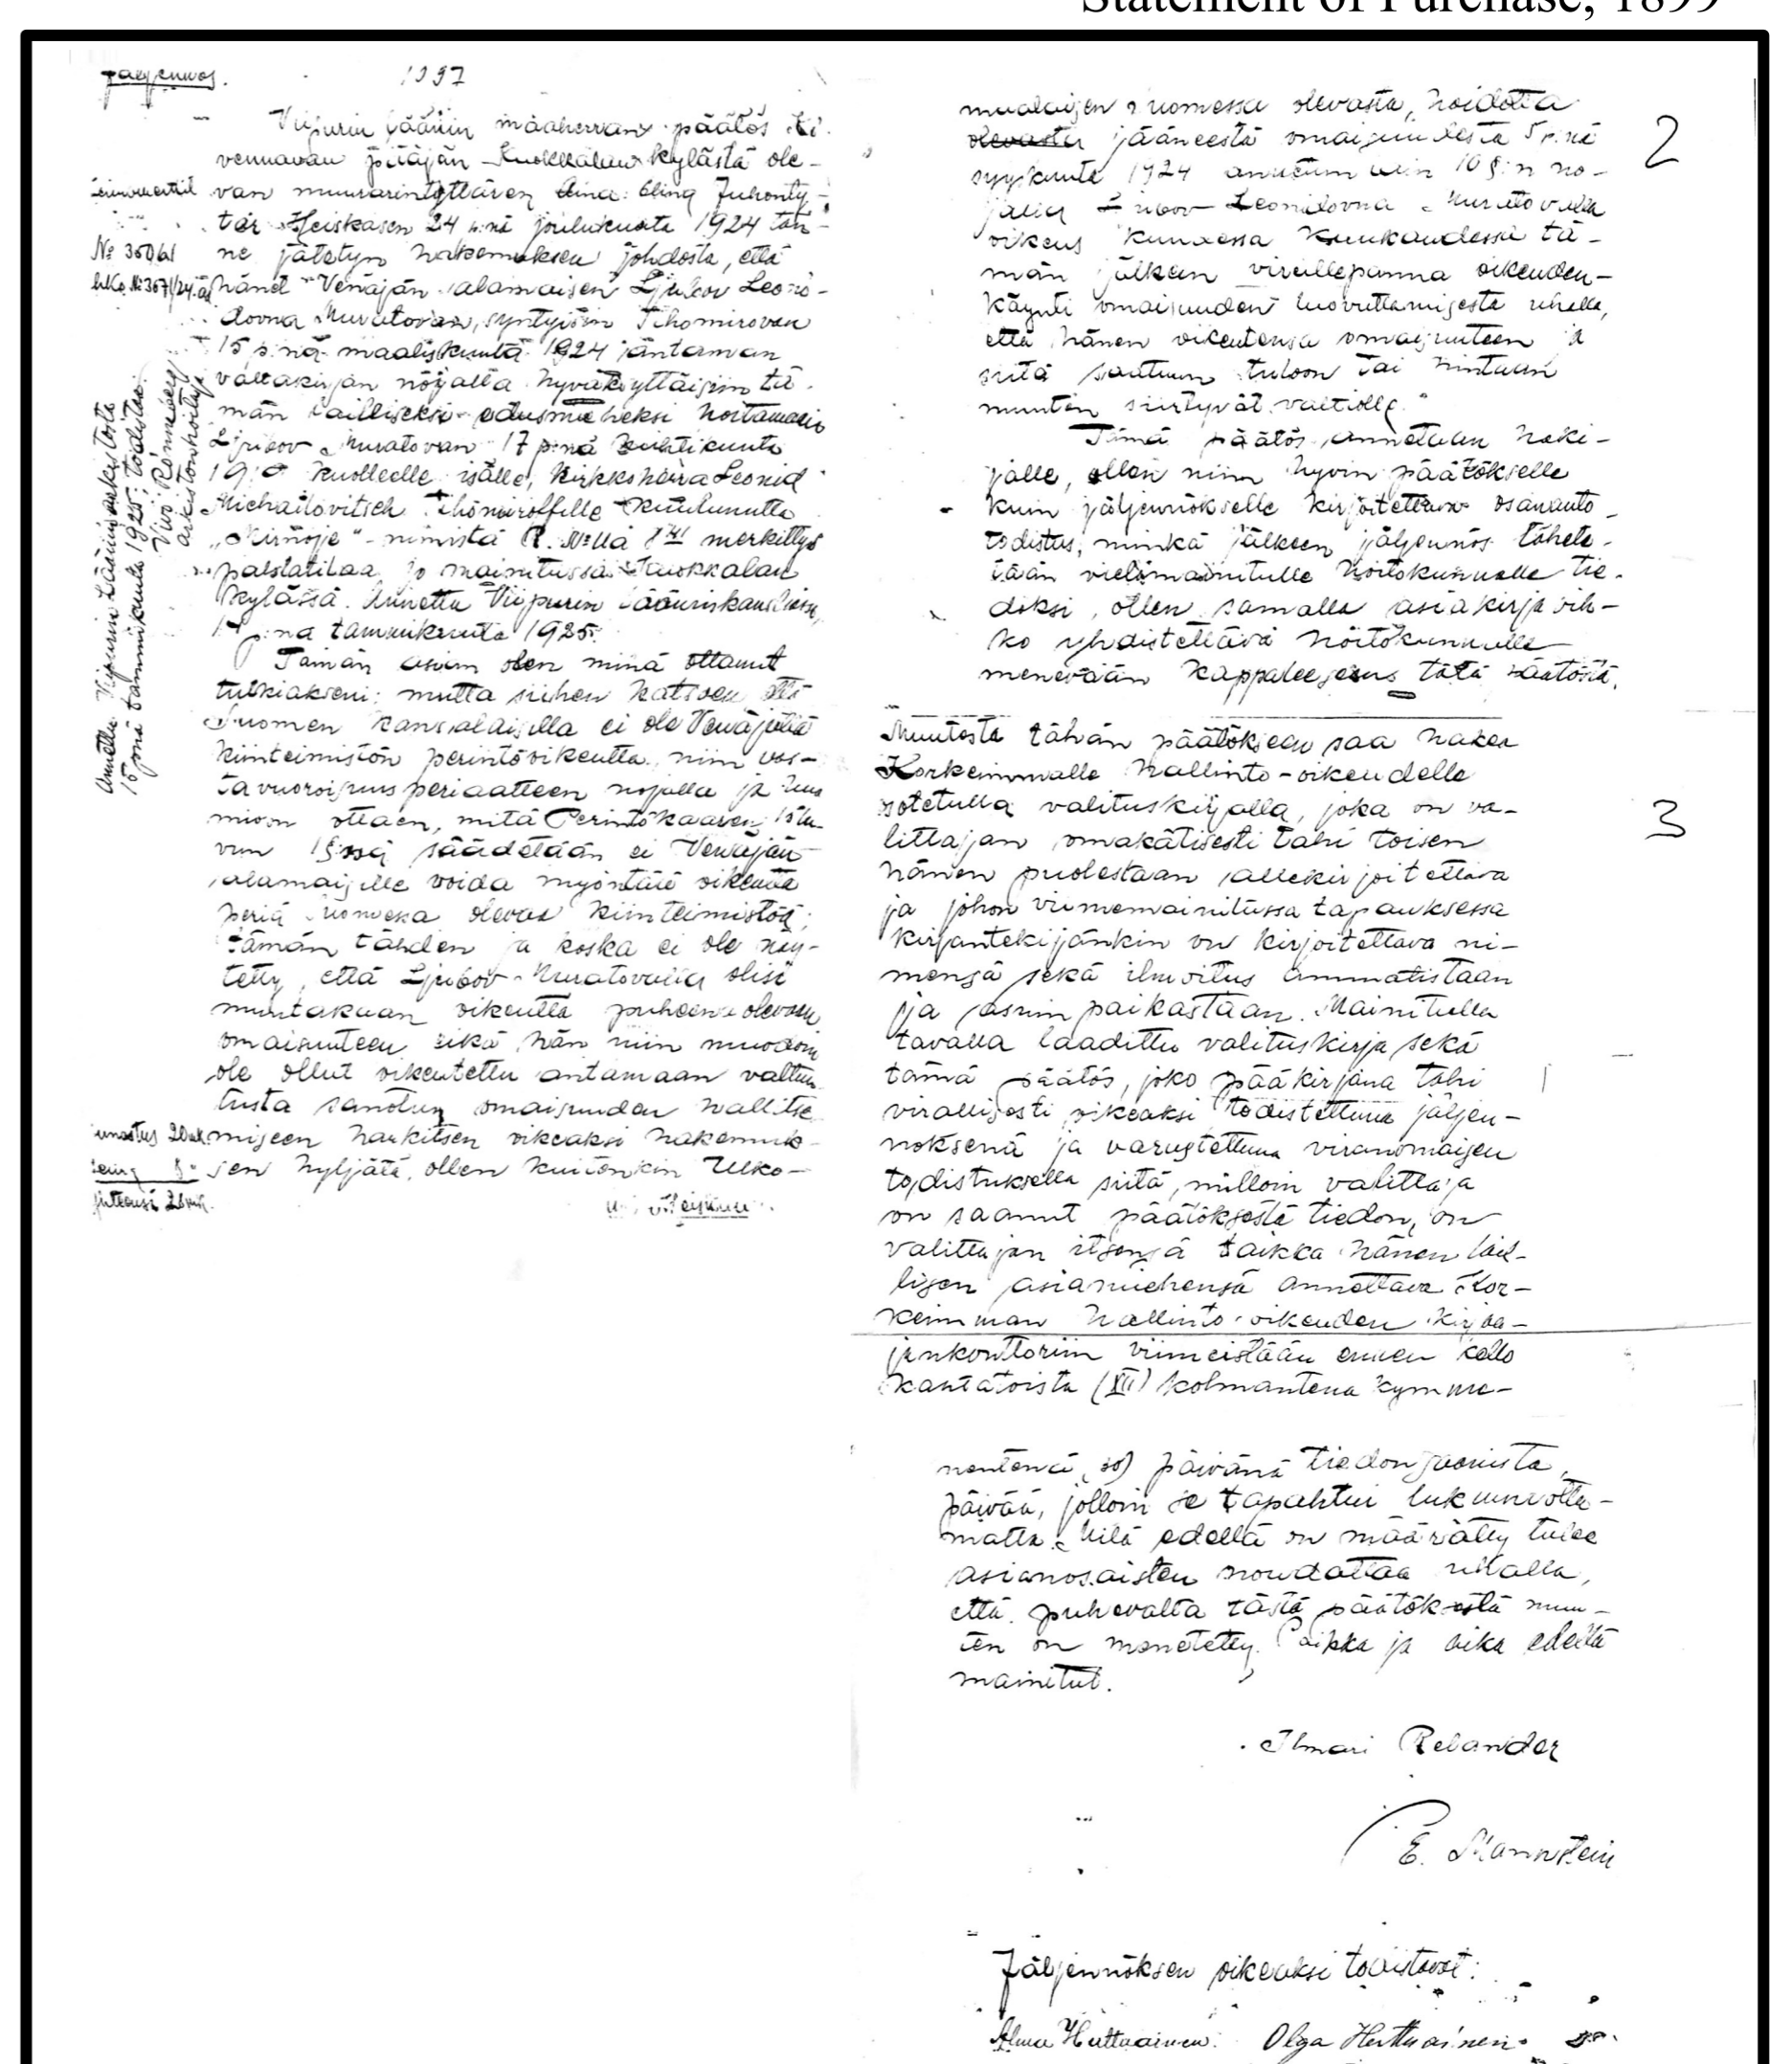 Statement of Purchase, 1899
Jäljennös.
Viipurin läänin maaherran päätös Ki-
vennavan pitäjän Kuokkalan kylästä ole-
van muurarintyttären Aina Juhonty-
tär Heiskasen 24 p:nä joulukuuta 1924 tän-
ne jätetyn hakemuksen johdosta, että
hänet Venäjän alamaisen Ljubov Leoni-
dovna Muratovan, syntyisin Tihomirovan
15 p:nä maaliskuuta 1924 antaman
valtakirjan nojalla hyväksyttäisiin tä-
män lailliseksi edusmieheksi hoitamaan
Ljubov Muratovan 17 p:nä huhtikuuta
kuolleelle isälle, kirkkoherra Leonid
Michailovitsch Tihomiroffille kuulunutta
„Kirnoje"-nimistä R. N:llä merkittyä
palstatilaa jo mainitussa Kuokkalan
kylässä. Annettu Viipurin lääninkansliassa,
p:nä tammikuuta 1925.
Tämän asian olen minä ottanut
tutkiakseni; mutta siihen katsoen että
Suomen kansalaisilla ei ole Venäjällä
kiinteimistön perintöoikeutta, niin vas-
tavuoroisuusperiaatteen nojalla ja huo
mioon ottaen, mitä Perintökaaren 15 lu-
vun 1 §:ssä säädetään ei Venäjän
alamaisille voida myöntää oikeutta
periä Suomessa olevaa kiinteimistöä;
tämän tähden ja koska ei ole näy-
tetty, että Ljubov Muratovalla olisi
muutakaan oikeutta puheena olevaan
omaisuuteen eikä hän niin muodoin
ole ollut oikeutettu antamaan valtuu-
tusta sanotun omaisuuden hallitse-
miseen harkitsen oikeaksi hakemuk-
sen hyljätä, ollen kuitenkin Ulko-
N:o
Annettu Viipurin Lääninarkistosta
15 p:nä tammikuuta 1925; todistaa:
Arkistonhoitaja
2
maalaisen Suomessa olevasta, hoidotta
olevasta jääneestä omaisuudesta 5 p:nä
syyskuuta 1924 annetun lain 10 §:n no-
jalla Ljubov Leonidovna Muratovalla
oikeus kuudessa kuukaudessa tä-
män jälkeen vireillepanna oikeuden-
käynti omaisuuden luovuttamisesta uhalla,
että hänen oikeutensa omaisuuteen ja
siitä saatuun tuloon tai hintaan
muuten siirtyvät valtiolle.
Tämä päätös annetaan haki-
jalle, ollen niin hyvin päätökselle
kuin jäljennökselle kirjoitettava osananto-
todistus, minkä jälkeen jäljennös lähete-
tään vielämainitulle hoitokunnalle tie-
doksi, ollen samalla asiakirjavih-
ko yhdistettävä hoitokunnalle
menevään kappaleeseen tätä päätöstä.
3
Muutosta tähän päätökseen saa hakea
Korkeimmalle hallinto-oikeudelle
osotetulla valituskirjalla, joka on va-
littajan omakätisesti tahi toisen
hänen puolestaan allekirjoitettava
ja johon viimemainitussa tapauksessa
kirjantekijänkin on kirjoitettava ni-
mensä sekä ilmoitus ammatistaan
ja asuinpaikastaan. Mainitulla
tavalla laadittu valituskirja sekä
tämä päätös, joko pääkirjana tahi
virallisesti oikeaksi todistettuna jäljen-
nöksenä ja varustettuna viranomaisen
todistuksella siitä, milloin valittaja
on saanut päätöksestä tiedon, on
valittajan itsensä taikka hänen lail-
lisen asiamiehensä annettava Kor-
keimman hallinto-oikeuden kirjaa-
jankonttoriin viimeistään ennen kello
kahtatoista (XII) kolmantena kymme-
nentenä (30) päivänä tiedonsaannista,
päivää, jolloin se tapahtui lukuunotta-
matta. Mitä edellä on määrätty tulee
asianosaisten noudattaa uhalla,
että puhevalta tästä päätöksestä muu-
ten on menetetty. Paikka ja aika edellä
mainitut.
Ilmari Relander
E. Mannstein
Jäljennöksen oikeaksi todistavat:
Alma Huttunainen. Olga Huttunainen.